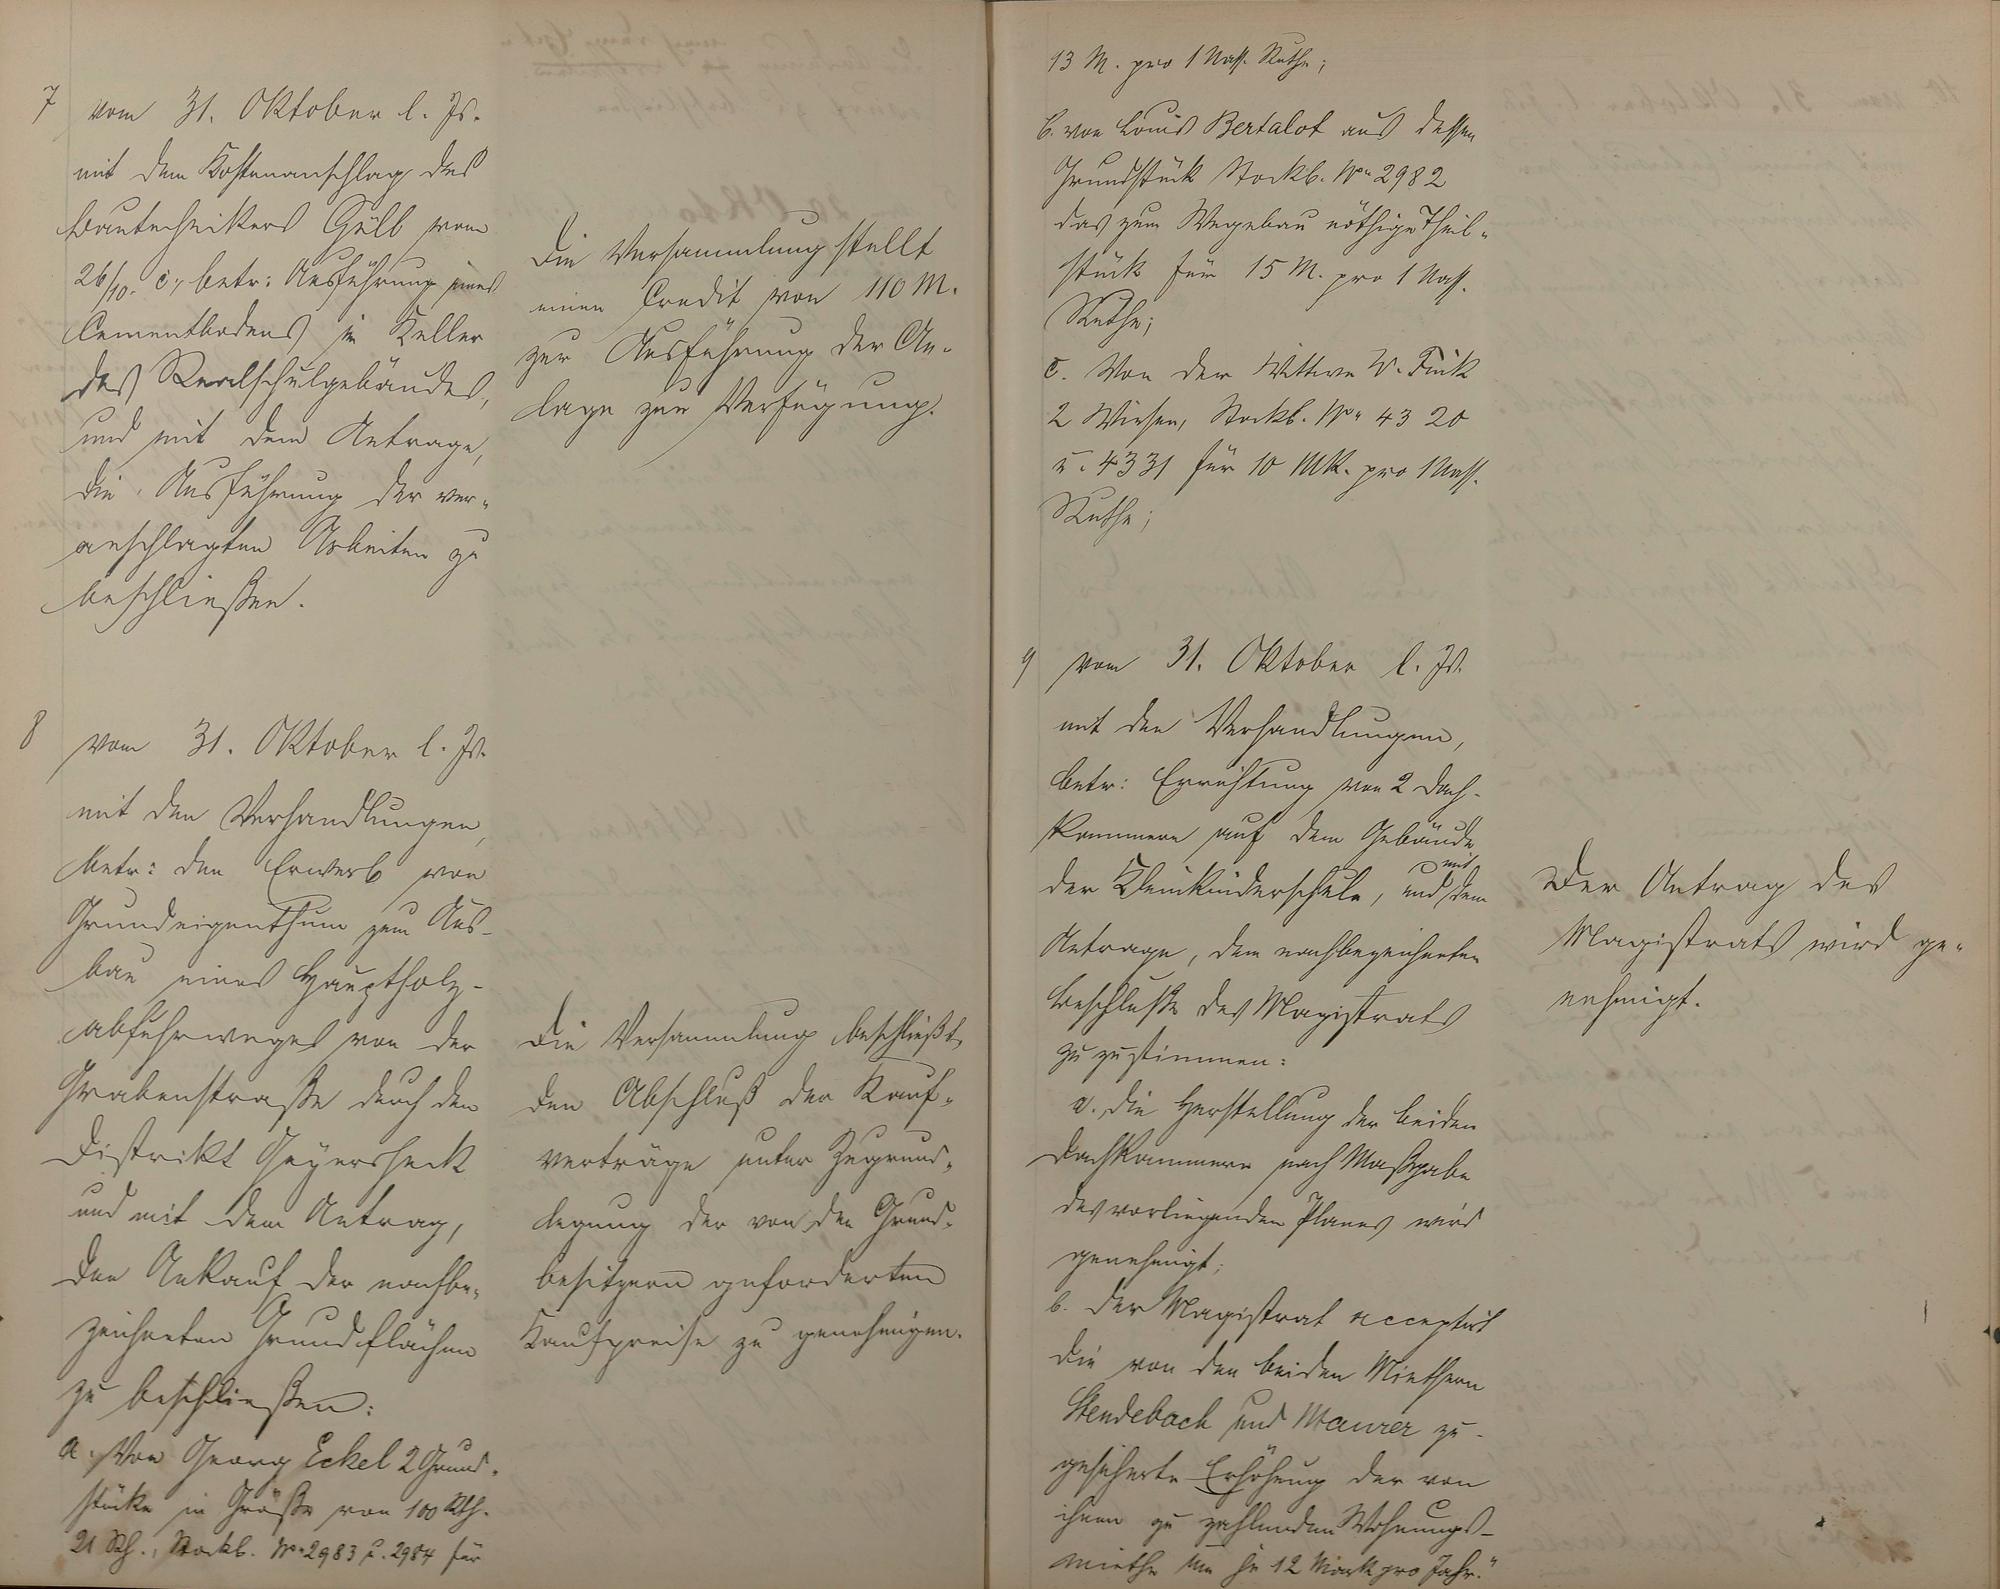 7 vom 31. Oktober l. Js.
mit dem Kostenanschlag des
Bautechnikers Gülb vom
26/10. c., betr: Ausführung eines
Cementbodens im Keller
des Realschulgebäudes,
und mit dem Antrage,
die Ausführung der ver-
anschlagten Arbeiten zu
beschließen.
Die Versammlung stellt
einen Credit von 110 M.
zur Ausführung der An-
lage zur Verfügung.
8 vom 31. Oktober l. Js.
mit den Verhandlungen,
betr: den Erwerb von
Grundeigenthum zum Aus-
bau eines Hauptholz-
abfuhrweges von der
Grabenstraße durch den
Distrikt Geyersheck
und mit dem Antrag,
den Ankauf der nachbe-
zeichneten Grundflächen
zu beschließen:
a. Von Georg Eckel 2 Grund-
stücke in Größe von 100 Rth.
21 Sch., Stockb. No 2983 u. 2984 für
Die Versammlung beschließt,
den Abschluß der Kauf-
verträge unter Zugrund-
legung der von den Grund-
besitzern geforderten
Kaufpreise zu genehmigen.
13 M. pro 1 Nass. Ruthe;
b. von Louis Bertalot aus dessen
Grundstück Stockb. No 2982
das zum Wegebau nöthige Theil-
stück für 15 M. pro 1 Nass.
Ruthe;
c. Von der Wittwe W. Fink
2 Wiesen, Stockb. No 4320
u. 4331 für 10 Mk. pro 1 Nass.
Ruthe;
9 vom 31. Oktober l. Js.
mit den Verhandlungen,
betr: Errichtung von 2 Dach-
kammern auf dem Gebäude
der Kleinkinderschule, und mit dem
Antrage, dem nachbezeichneten
Beschlusse des Magistrats
zuzustimmen:
a. Die Herstellung der beiden
Dachkammern nach Maßgabe
des vorliegenden Planes wird
genehmigt;
b. Der Magistrat acceptirt
die von den beiden Miethern
Stendebach und Maurer zu-
gesicherte Erhöhung der von
ihnen zu zahlenden Wohnungs-
miethe um je 12 Mark pro Jahr."
Der Antrag des
Magistrats wird ge-
nehmigt.